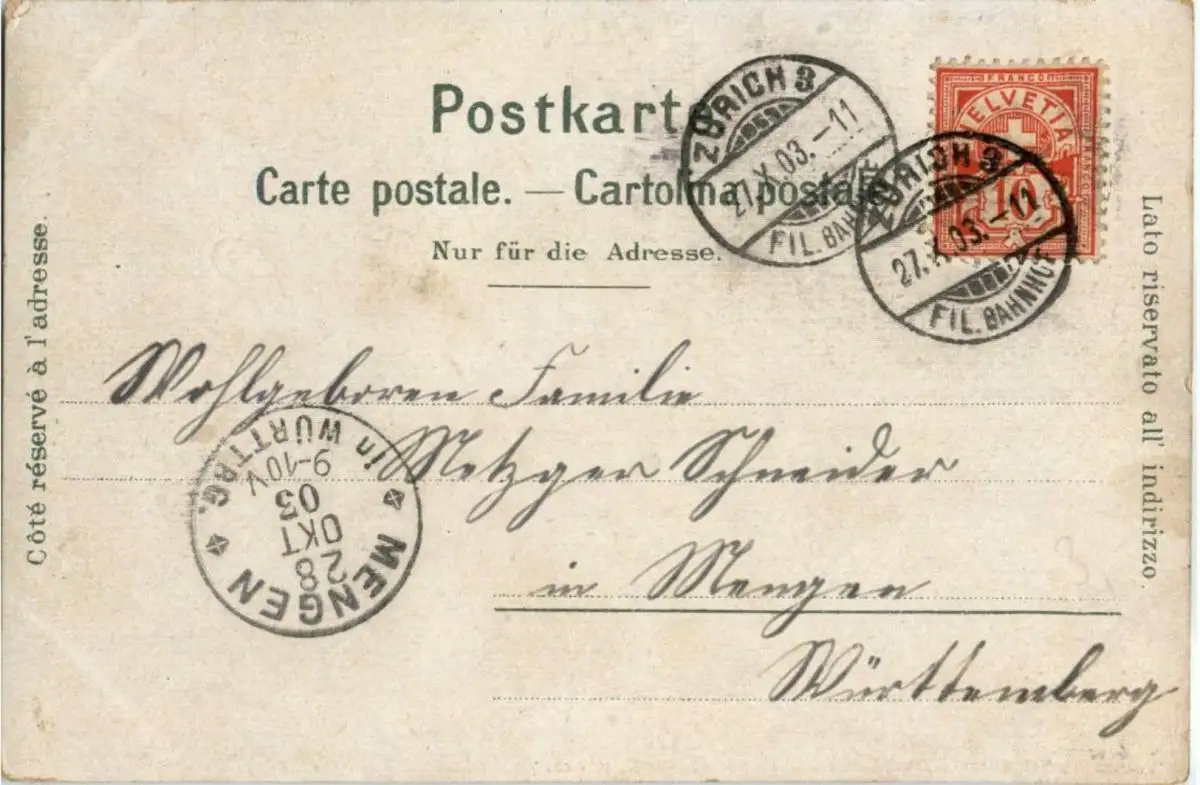 Postkarte
Carte postale. — Cartolina postale.
Nur für die Adresse.
Côté réservé à l'adresse.
Lato riservato all' indirizzo.
FRANCO
HELVETIA
10
ZÜRICH 3
27.X.03.–11
FIL. BAHNHOF
ZÜRICH 3
27.X.03.–11
FIL. BAHNHOF
Wohlgeboren Familie
Metzger Schneider
in Mengen
Württemberg
MENGEN
28
OKT
03
9–10V
in WÜRTTBG.